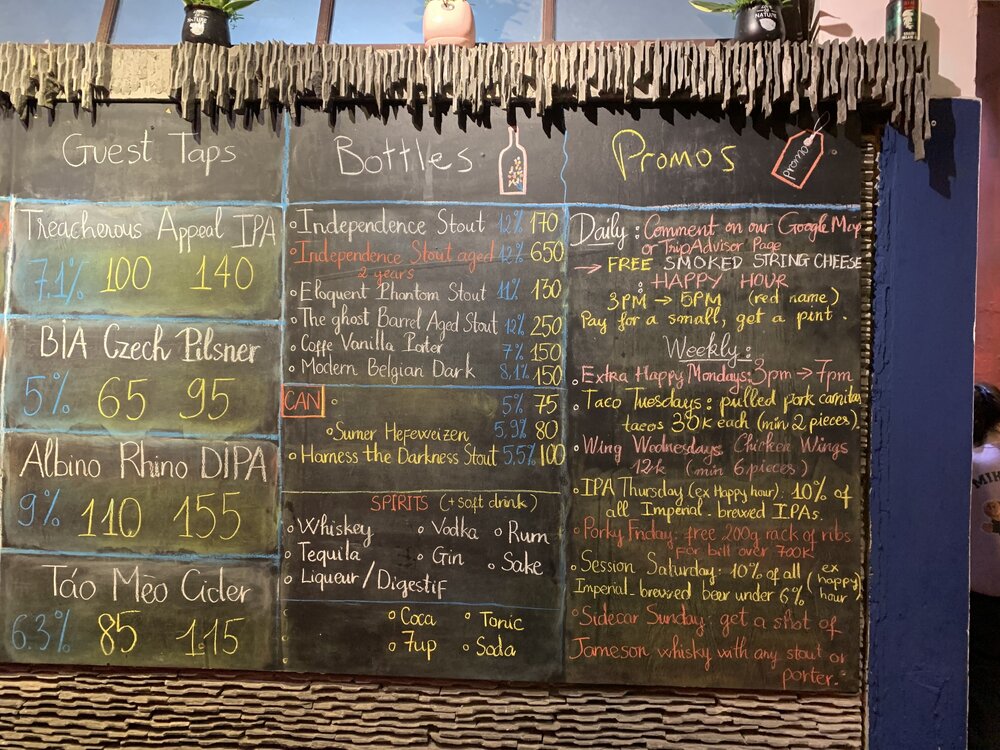 Guest Taps
Treacherous Appeal IPA
7.1% 100 140
BIA Czech Pilsner
5% 65 95
Albino Rhino DIPA
9% 110 155
Táo Mèo Cider
6.3% 85 115
Bottles
Independence Stout 12% 170
Independence Stout aged 12% 650
2 years
Eloquent Phantom Stout 11% 130
The ghost Barrel Aged Stout 12% 250
Coffe Vanilla Porter 7% 150
Modern Belgian Dark 8,1% 150
CAN
5% 75
Sumer Hefeweizen 5,9% 80
Harness the Darkness Stout 5,5% 100
SPIRITS (+ soft drink)
Whiskey Vodka Rum
Tequila Gin Sake
Liqueur/Digestif
Coca Tonic
7up Soda
Promos
Promo
Daily: Comment on our Google Map
or TripAdvisor Page
→ FREE SMOKED STRING CHEESE
: HAPPY HOUR
3PM → 5PM (red name)
Pay for a small, get a pint.
Weekly:
Extra Happy Mondays: 3pm → 7pm
Taco Tuesdays: pulled pork carnitas
tacos 30k each (min 2 pieces)
Wing Wednesdays Chicken Wings
12k (min 6 pieces)
IPA Thursday (ex Happy hour): 10% of
all Imperial-brewed IPAs.
Porky Friday: free 200g rack of ribs
for bill over 700K!
Session Saturday: 10% of all (ex
Imperial-brewed beer under 6% happy
hour)
Sidecar Sunday: get a shot of
Jameson whisky with any stout or
porter.